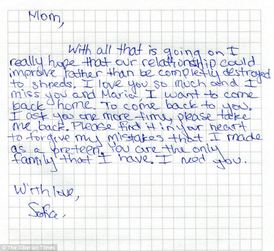 Mom,
With all that is going on I
really hope that our relationship could
improve rather than be completly destroyed
to shreds. I love you so much and I
miss you and Maria. I want to come
back home. To come back to you.
I ask you one more time, please take
me back. Please find it in your heart
to forgive my mistakes that I made
as a preteen. You are the only
family that I have. I need you.
With love,
© The Charlotte